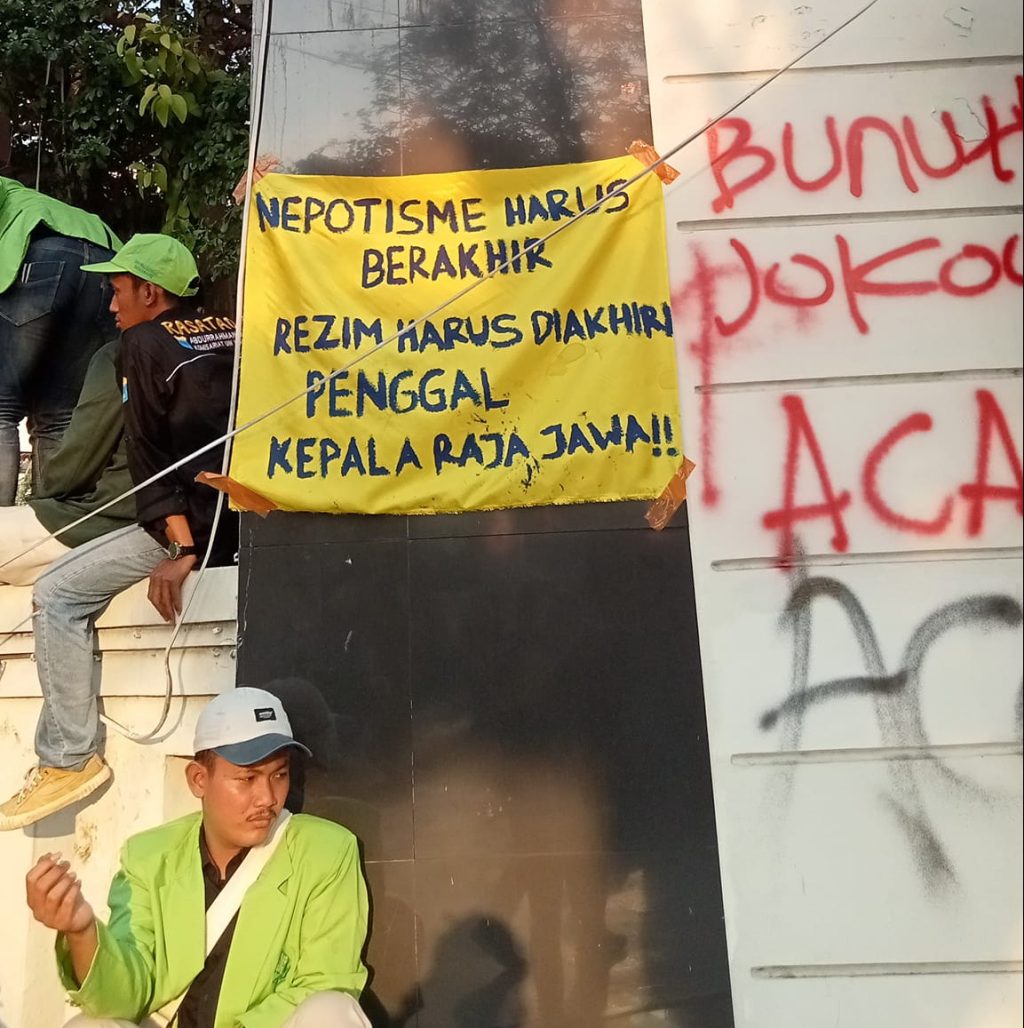 NEPOTISME HARUS
BERAKHIR
REZIM HARUS DIAKHIRI
PENGGAL
KEPALA RAJA JAWA!!
BUNUH
JOKO
ACA
AC
RASATAN
ABDURRAHMAN